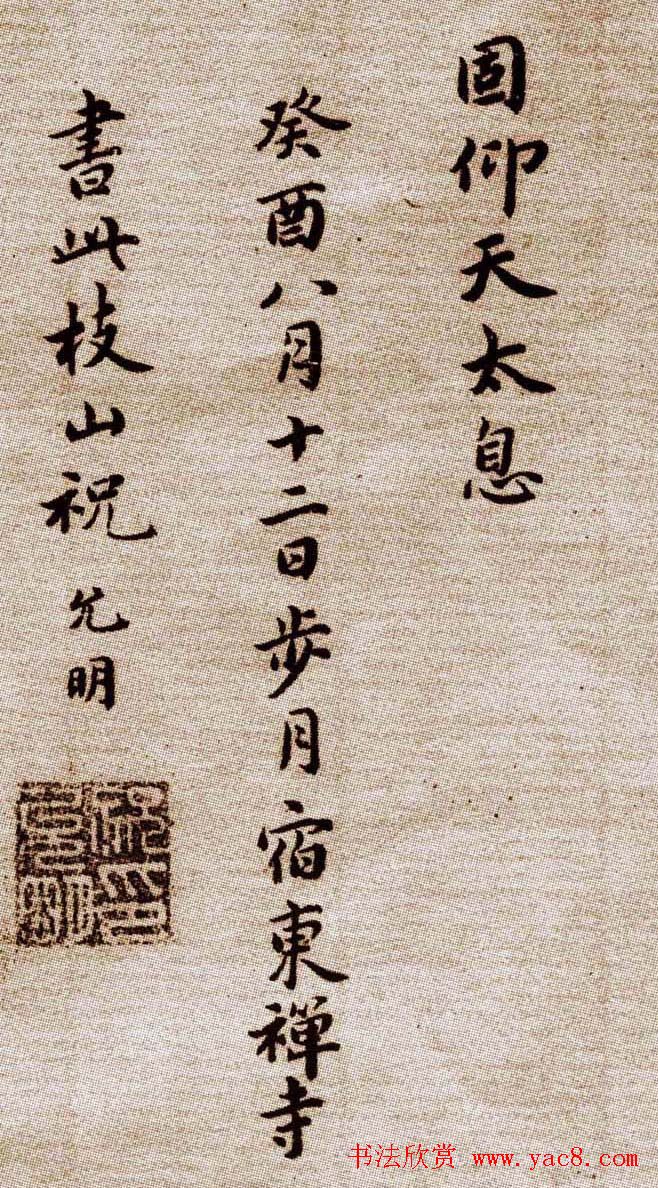 固仰天太息
癸酉八月十二日步月宿東禪寺
書此枝山祝允明
书法欣赏 www.yac8.com